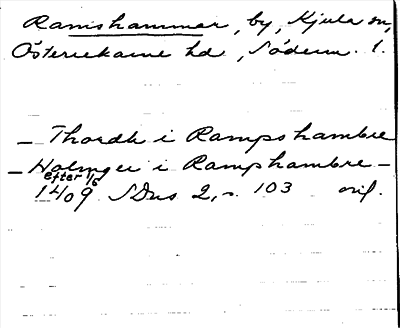 Ramshammar, by, Kjula sn,
Österrekarne hd, Söderm. l.
– Thordh i Rampshambre
– Holmger i Ramphambre –
efter 1/6
1409 SDns 2, s. 103 orig.